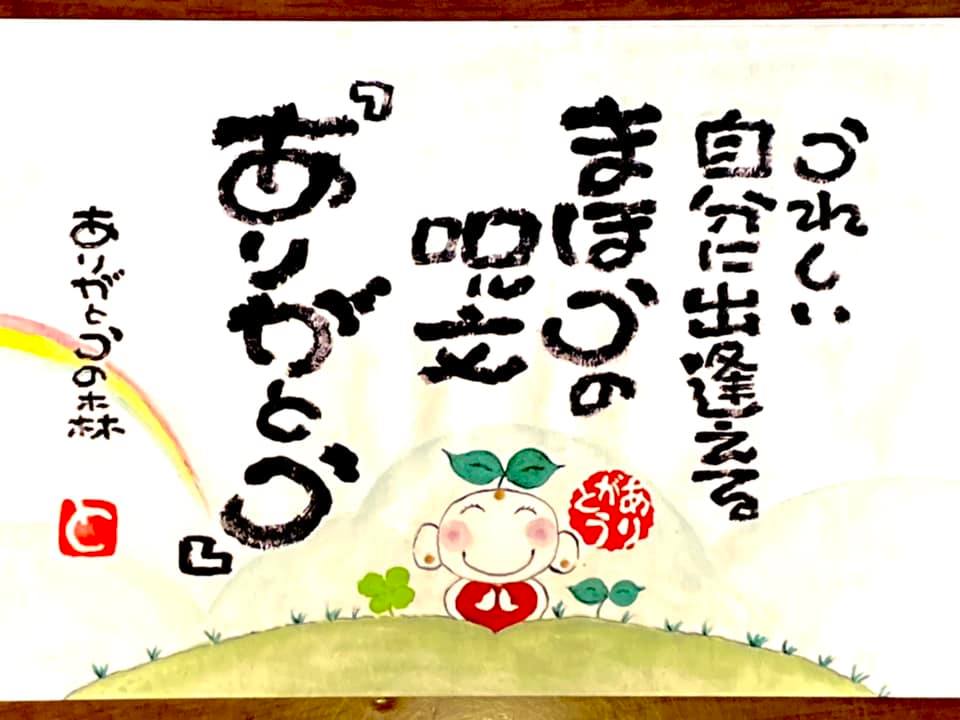 うれしい
自分に出逢える
まほうの
呪文
『ありがとう』
ありがとうの森
ありがとう
と